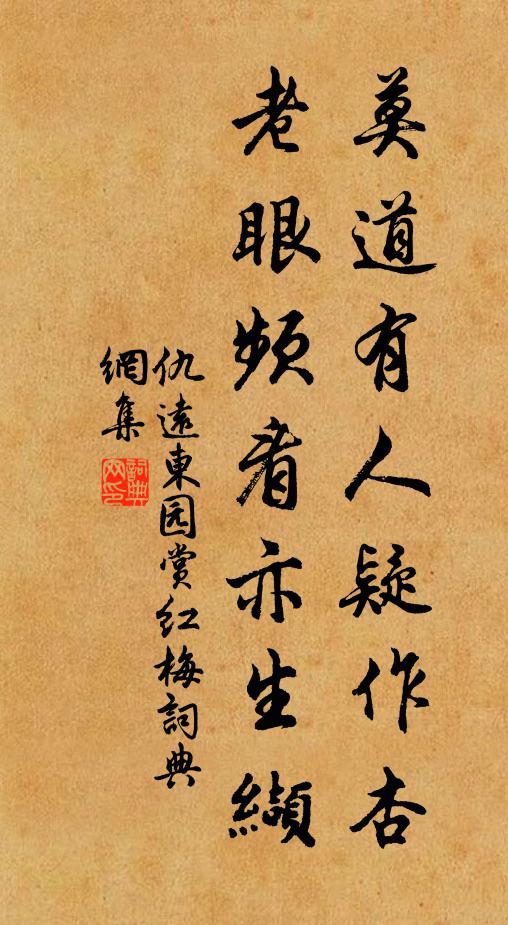 莫道有人疑作杏
老眼频看亦生纈
仇遠東园赏红梅詞典
網集
詞典
网印